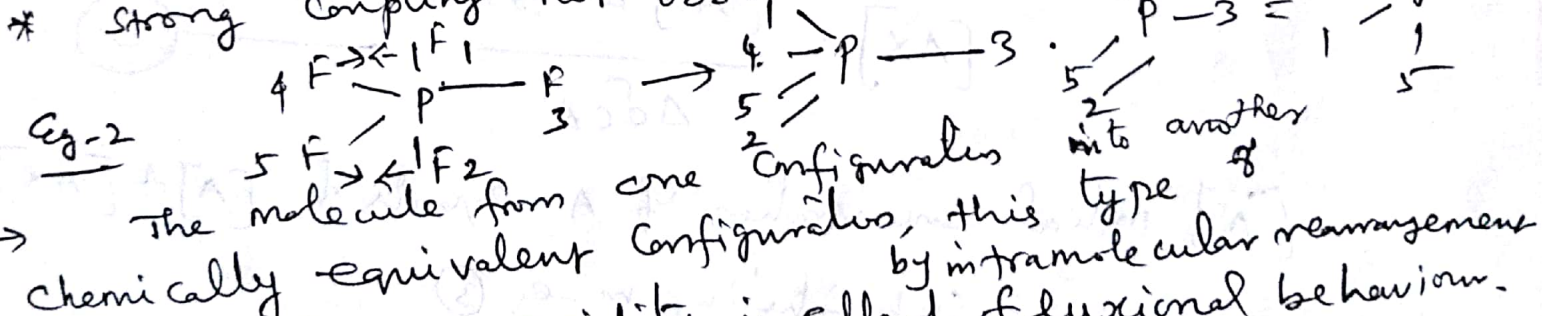 * Strong Coupling
Eg-2 4 F 1 F 1 P F 3 5 F F 2 → 4 5 2 P 3 . 5 2 P - 3 = 1 1 5
→ The molecule from one Configuration into another
chemically equivalent Configuration, this type of
by intramolecular rearrangement
is called fluxional behaviour.